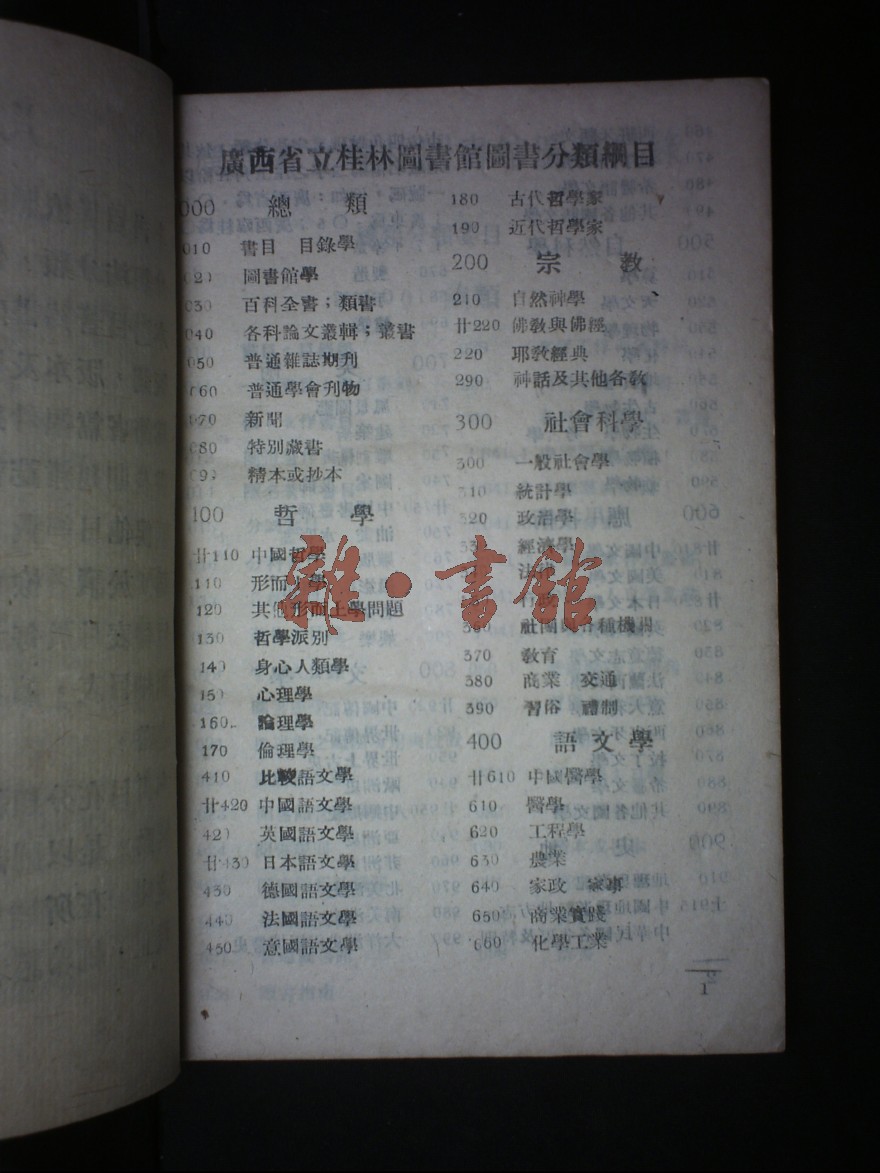 廣西省立桂林圖書館圖書分類綱目
000 總 類
010 書目 目錄學
020 圖書館學
030 百科全書；類書
040 各科論文叢輯；叢書
050 普通雜誌期刊
060 普通學會刊物
070 新聞
080 特別藏書
09 精本或抄本
100 哲 學
廿110 中國哲學
110 形而上學
120 其他形而上學問題
130 哲學派別
140 身心人類學
150 心理學
160 論理學
170 倫理學
410 比較語文學
廿420 中國語文學
420 英國語文學
廿430 日本語文學
430 德國語文學
440 法國語文學
450 意國語文學
180 古代哲學家
190 近代哲學家
200 宗 教
210 自然神學
廿220 佛教與佛經
220 耶教經典
290 神話及其他各教
300 社會科學
300 一般社會學
310 統計學
320 政治學
33 經濟學
法
360 社團與各種機關
370 教育
380 商業 交通
390 習俗 禮制
400 語文學
廿610 中國醫學
610 醫學
620 工程學
630 農業
640 家政 家事
650 商業實踐
660 化學工業
1
雜·書館